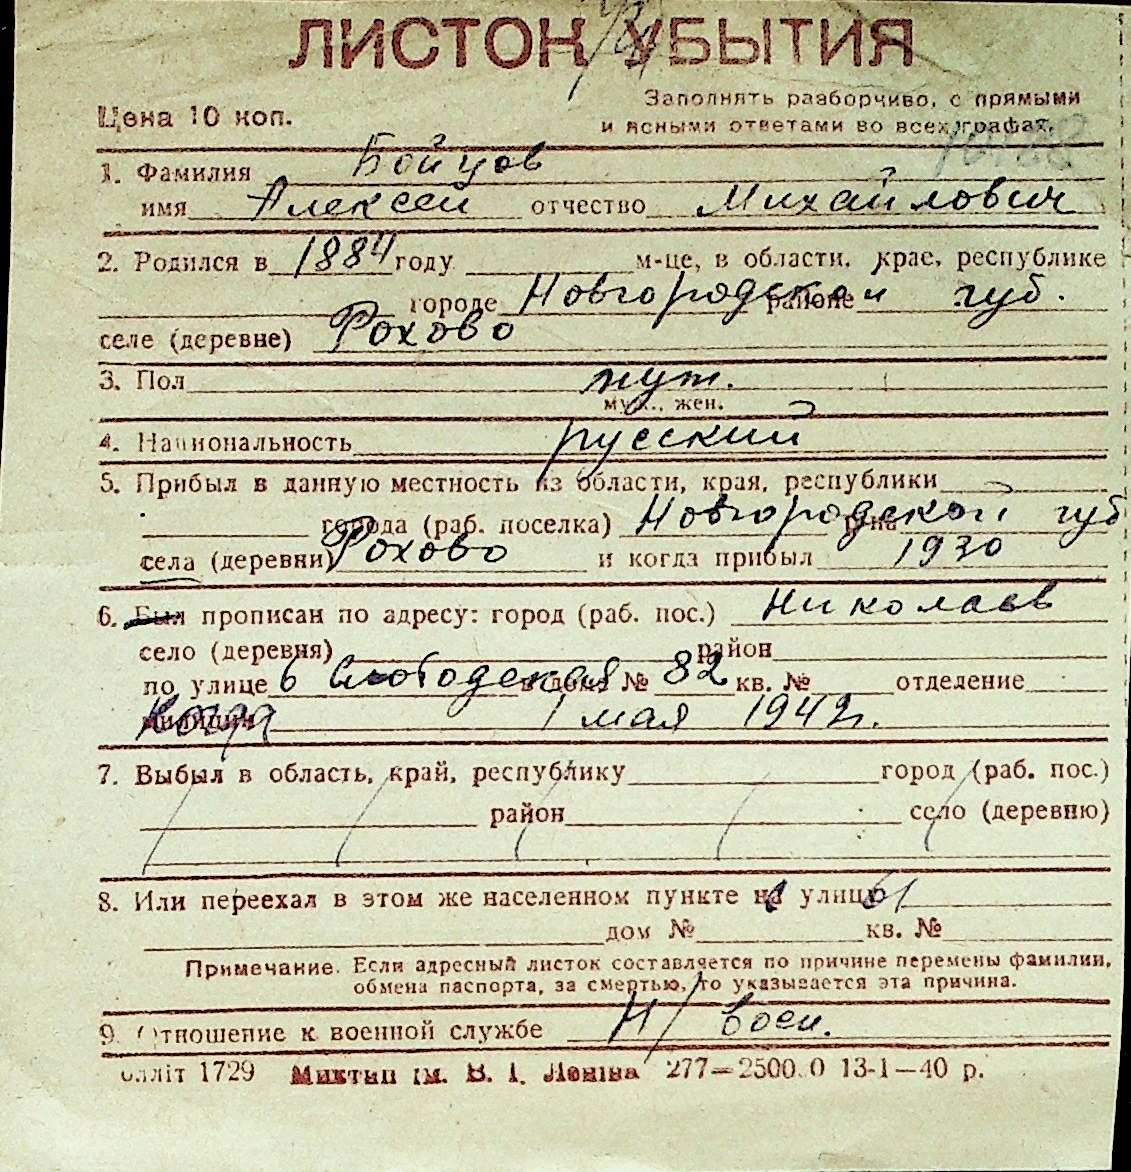 ЛИСТОК УБЫТИЯ
Цена 10 коп.
Заполнять разборчиво, с прямыми
и ясными ответами во всех графах.
1. Фамилия Бойцов
имя Алексей отчество Михайлович
2. Родился в 1884 году м-це, в области, крае, республике
городе Новгородской районе губ.
селе (деревне) Рохово
3. Пол муж.
муж., жен.
4. Национальность русский
5. Прибыл в данную местность из области, края, республики
города (раб. поселка) Новгородской р-на губ
села (деревни) Рохово и когда прибыл 1930
6. Был прописан по адресу: город (раб. пос.) Николаев
село (деревня) район
по улице 6 Слободская дом № 82 кв. № отделение
милиции Когда 1 мая 1942г.
7. Выбыл в область, край, республику город (раб. пос.)
район село (деревню)
8. Или переехал в этом же населенном пункте на улицу
дом № кв. №
Примечание. Если адресный листок составляется по причине перемены фамилии,
обмена паспорта, за смертью, то указывается эта причина.
9. Отношение к военной службе Н/воен.
блліт 1729 Миктип ім. В. І. Леніна 277—2500.0 13-1—40 р.